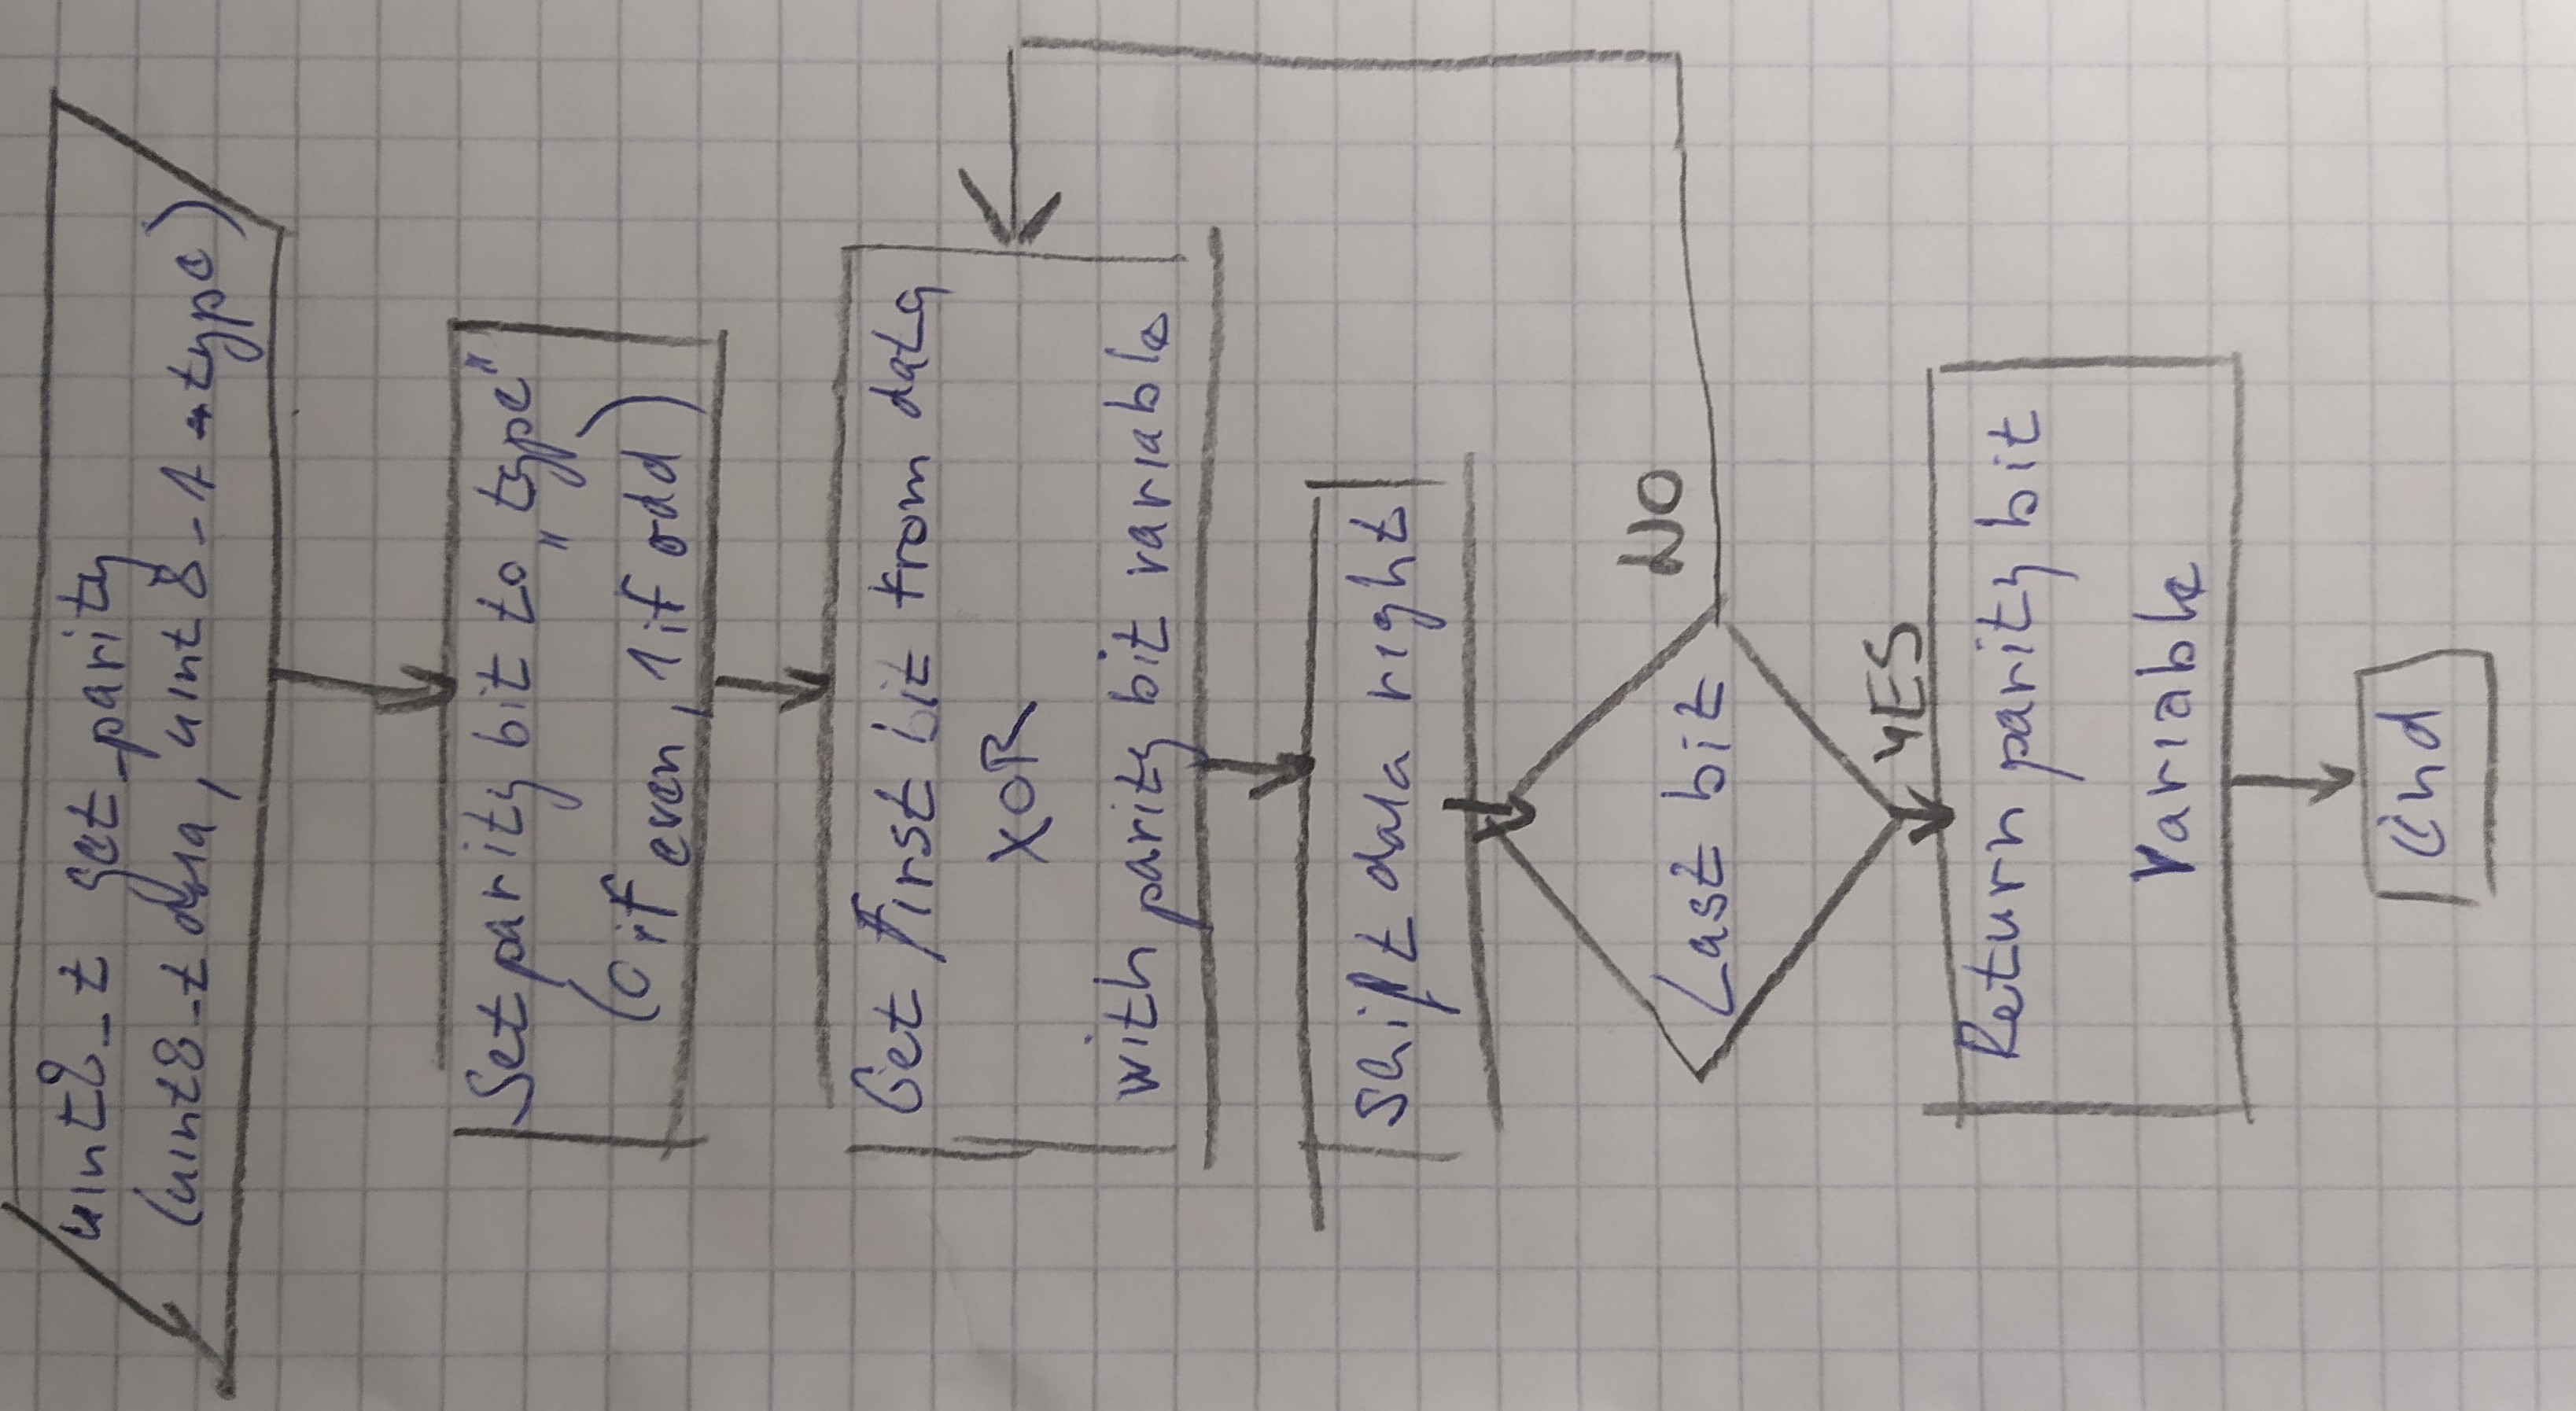 uint8_t get_parity
(uint8_t data, uint8_t type)
Set parity bit to "type"
(0 if even, 1 if odd)
Get first bit from data
XOR
with parity bit variable
Schift data right
Last bit
NO
YES
Return parity bit
variable
End